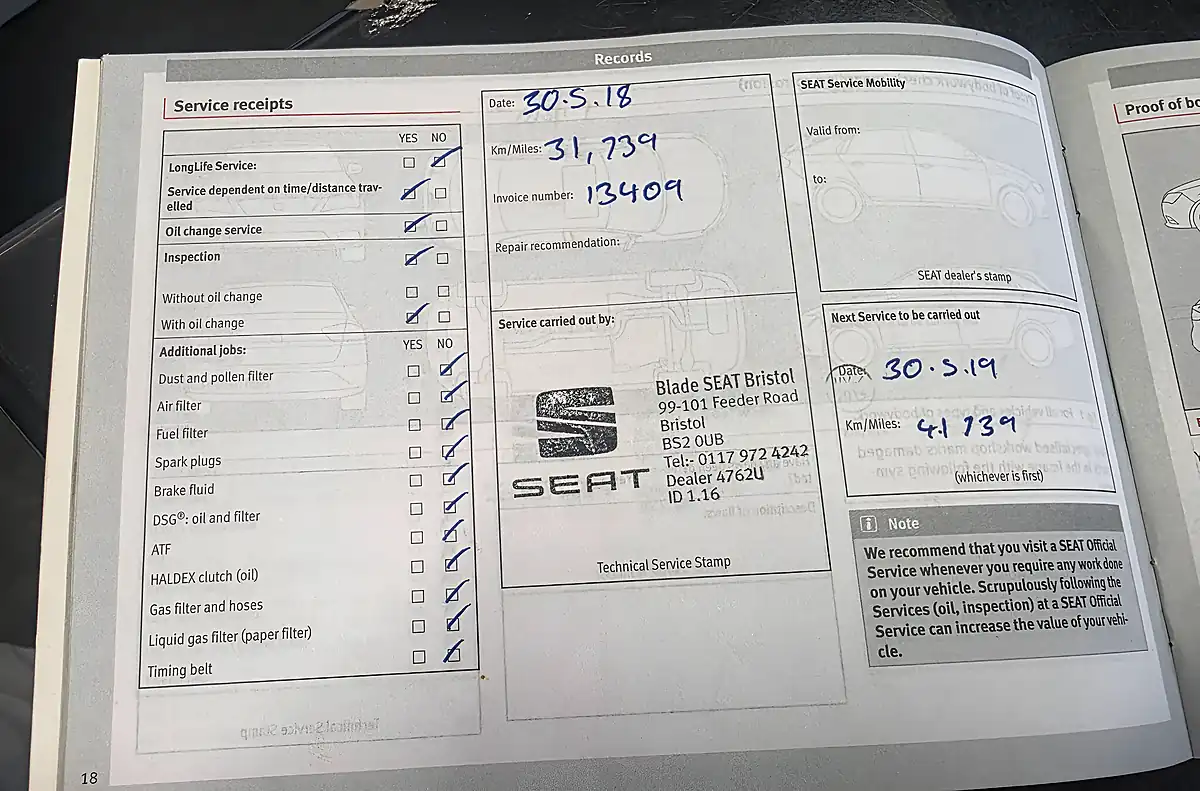 Records
Service receipts
YES NO
LongLife Service:
Service dependent on time/distance trav-
elled
Oil change service
Inspection
Without oil change
With oil change
Additional jobs:
YES NO
Dust and pollen filter
Air filter
Fuel filter
Spark plugs
Brake fluid
DSG®: oil and filter
ATF
HALDEX clutch (oil)
Gas filter and hoses
Liquid gas filter (paper filter)
Timing belt
18
Date: 30.5.18
Km/Miles: 31,739
Invoice number: 13409
Repair recommendation:
Service carried out by:
SEAT
Blade SEAT Bristol
99-101 Feeder Road
Bristol
BS2 0UB
Tel:- 0117 972 4242
Dealer 4762U
ID 1.16
Technical Service Stamp
SEAT Service Mobility
Valid from:
to:
SEAT dealer's stamp
Next Service to be carried out
Date: 30.5.19
Km/Miles: 41 739
(whichever is first)
i Note
We recommend that you visit a SEAT Official
Service whenever you require any work done
on your vehicle. Scrupulously following the
Services (oil, inspection) at a SEAT Official
Service can increase the value of your vehi-
cle.
Proof of bo